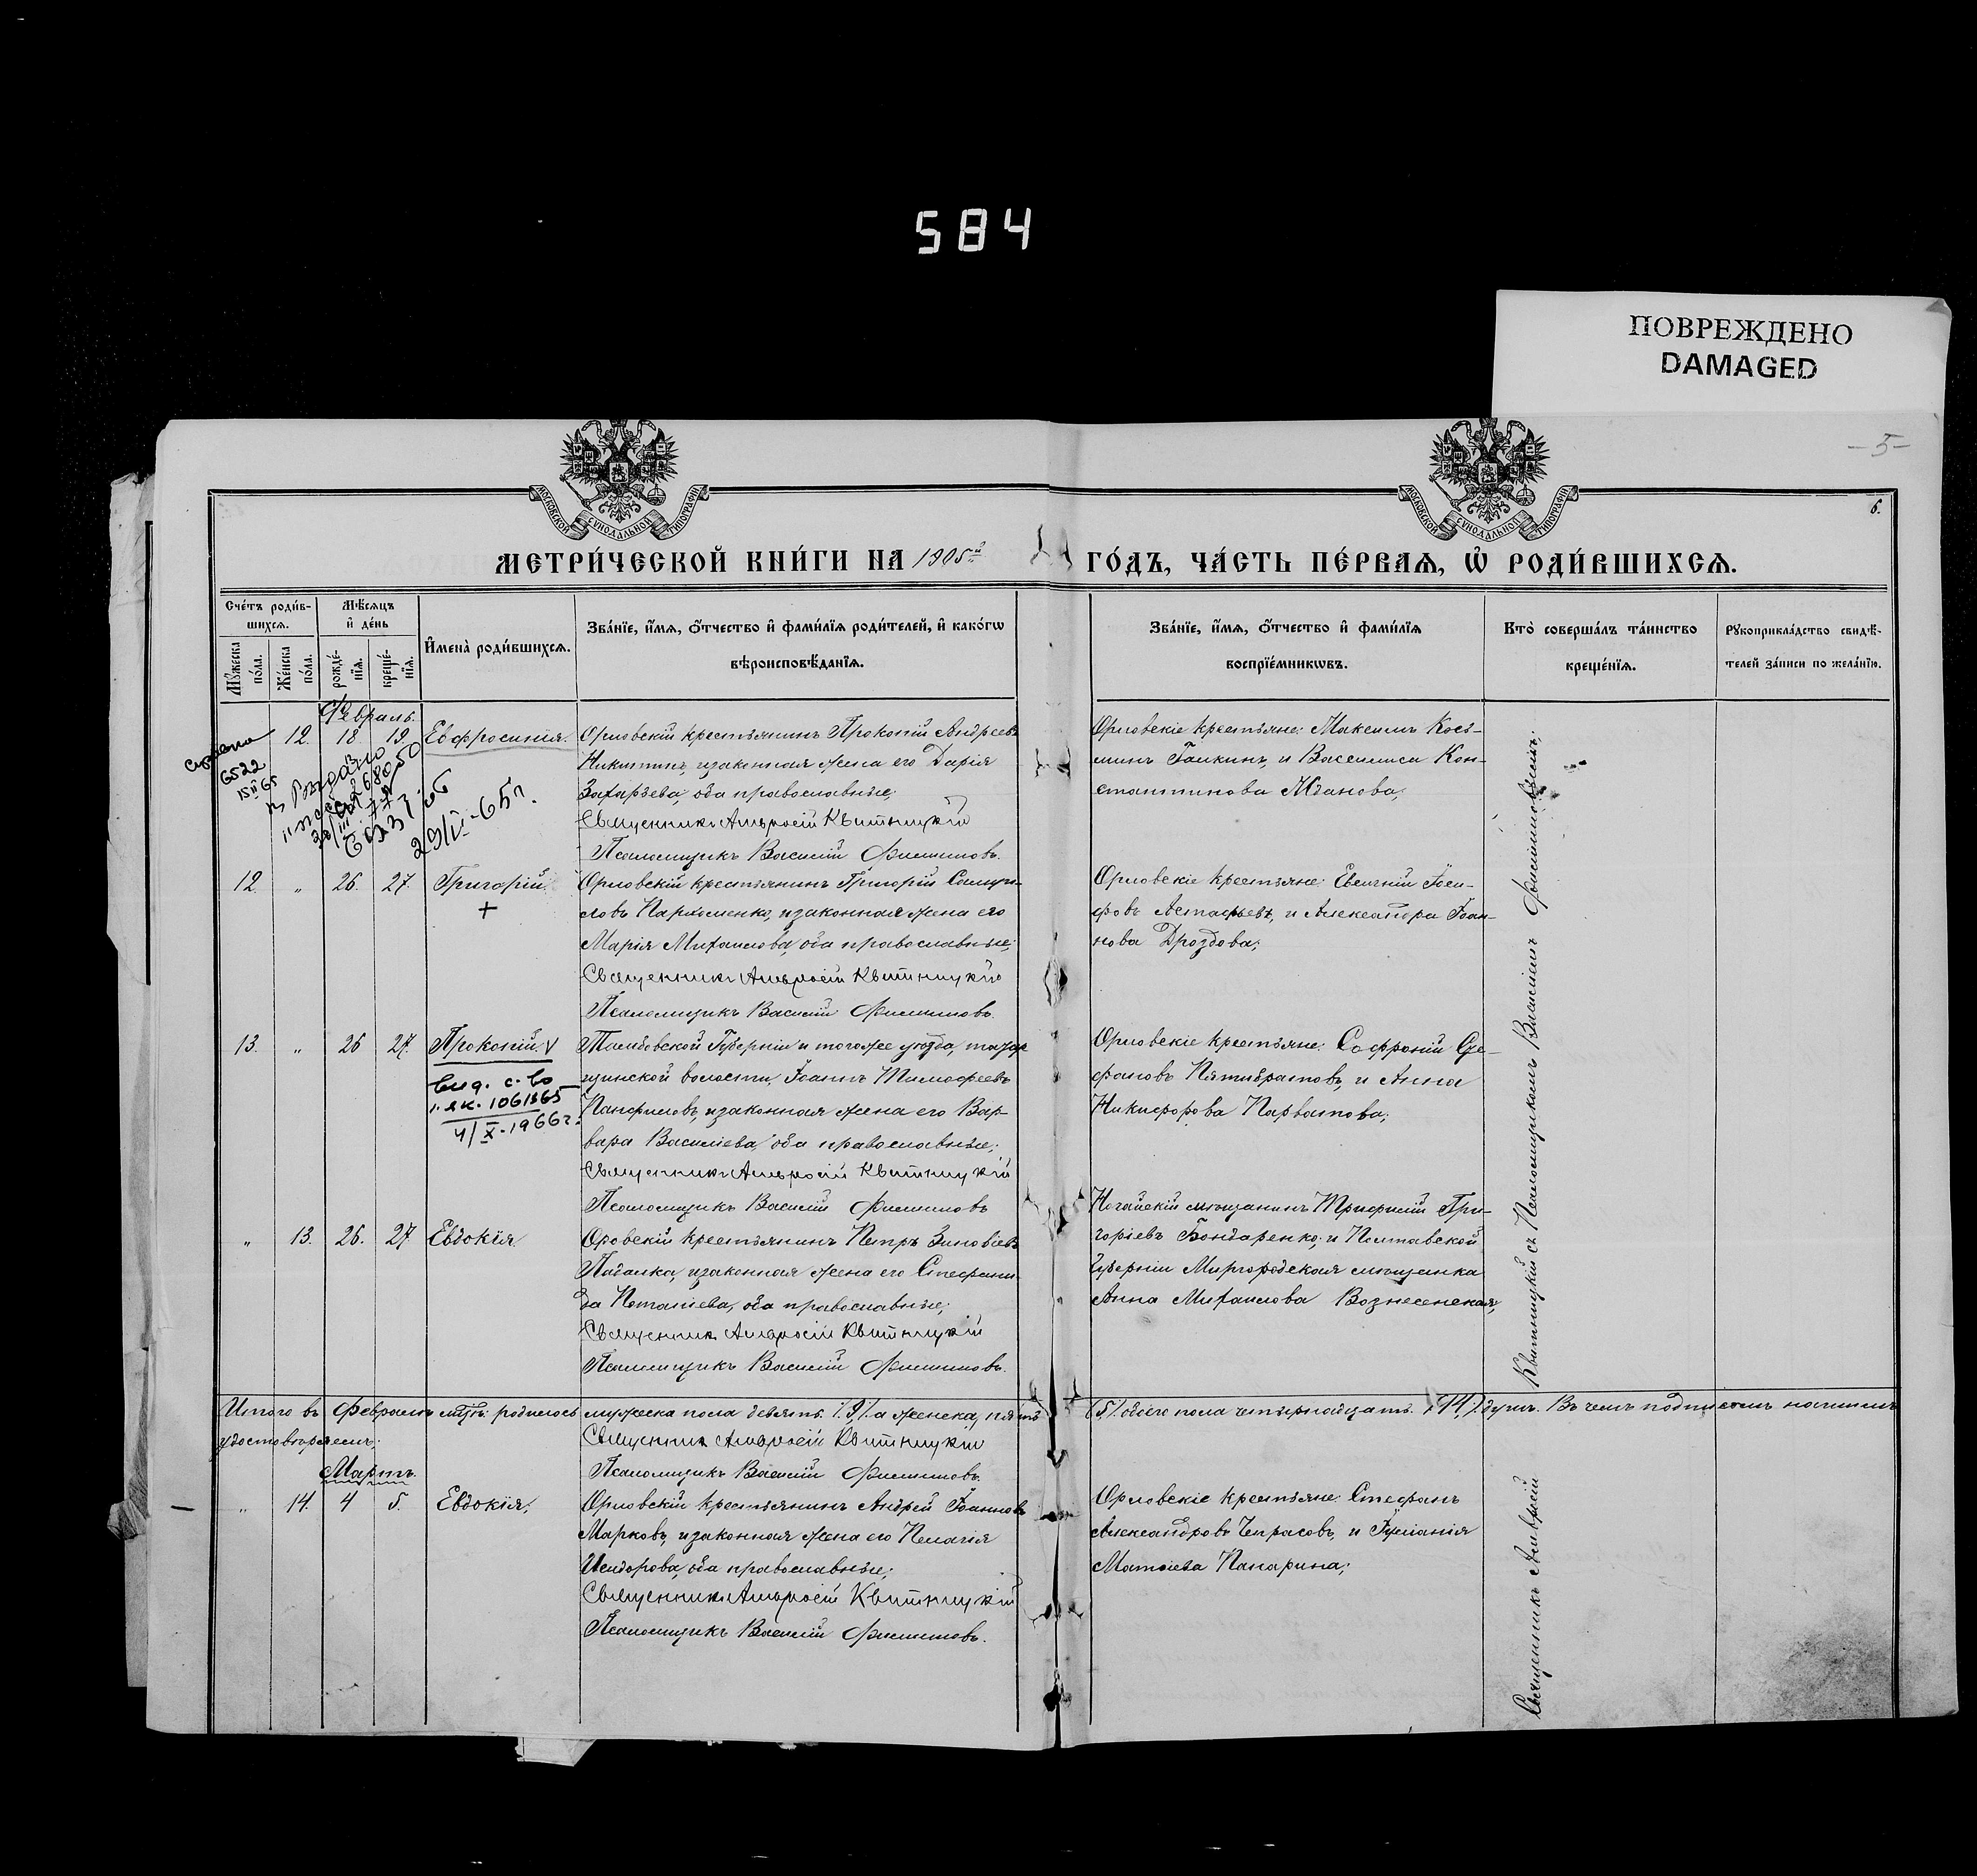 584
ПОВРЕЖДЕНО
DAMAGED
-5-
6.
МОСКОВСКОЙ СѴНОДАЛЬНОЙ ТИПОГРАФІИ
МОСКОВСКОЙ СѴНОДАЛЬНОЙ ТИПОГРАФІИ
МЕТРИ́ЧЕСКОЙ КНИ́ГИ НА 1905й ГО́ДЪ, ЧА́СТЬ ПЕ́РВАѦ, Ѡ҆ РОДИ́ВШИХСѦ.
Сче́тъ роди́в-
шихсѧ.
Мѣ́сѧцъ
и҆ де́нь
Мꙋ́жеска по́ла.
Же́нска по́ла.
рожде́-
нїѧ.
креще́-
нїѧ.
И҆мена̀ роди́вшихсѧ.
Зва́нїе, и҆́мѧ, ѻ҆́тчество и҆ фами́лїѧ роди́телей, и҆ како́гѡ
вѣроисповѣ́данїѧ.
Зва́нїе, и҆́мѧ, ѻ҆́тчество и҆ фами́лїѧ
воспрїе́мникѡвъ.
Кто̀ соверша́лъ та́инство
креще́нїѧ.
Рꙋкоприкла́дство свидѣ́-
телей за́писи по жела́нїю.
Февраль.
12. 18. 19. Евфросинія. Орловскій крестьянинъ Прокопій Андреевъ
Никитинъ, и законная жена его Дарія
Захарьева, оба православные;
Священникъ Амвросій Квитницкій
Псаломщикъ Василій Филиповъ.
Орловскіе крестьяне: Максимъ Кось-
минъ Галкинъ, и Василиса Кон-
стантинова Жданова;
6522
15 II 65
29/IV-65г.
12. " 26. 27. Григорій. Орловскій крестьянинъ Григорій Самуи-
ловъ Пархоменко, и законная жена его
Марія Михаилова, оба православные;
Священникъ Амвросій Квитницкій
Псаломщикъ Василій Филиповъ.
+
Орловскіе крестьяне: Евгеній Іоси-
фовъ Астафьевъ, и Александра Іоан-
нова Дроздова;
13. " 26 27. Прокопій. V Тамбовской Губерніи и того же уѣзда,
волости, Іоаннъ Тимофеевъ
Панфиловъ, и законная жена его Вар-
вара Василіева, оба православные;
Священникъ Амвросій Квитницкій
Псаломщикъ Василій Филиповъ
выд. с-во
I. як. 1061365
4/X-1966г.
Орловскіе крестьяне: Софроній
Пятибратовъ, и Анна
Никифорова Парватова;
" 13. 26. 27. Евдокія Оровскій крестьянинъ Петръ Зиновіевъ
Падалка, и законная жена его Стефани-
да Потапіева, оба православные;
Священникъ Амвросій Квитницкій
Псаломщикъ Василій Филиповъ.
Ногайскій мѣщанинъ Трифилій Гри-
горіевъ Бондаренко; и Полтавской
Губерніи Миргородская мѣщанка
Анна Михаилова Вознесенская;
Итого въ Февралѣ мцѣ: родилось мужеска пола девять /9/ а женска, пять /5/ обоего пола четырнадцать /14/ душъ. Въ чемъ подписомъ нашимъ
удостовѣряемъ:
Священникъ Амвросій Квитницкій
Псаломщикъ Василій Филиповъ.
Мартъ.
" 14. 4 5. Евдокія. Орловскій крестьянинъ Андрей Іоанновъ
Марковъ, и законная жена его Пелагія
Исидорова, оба православные;
Священникъ Амвросій Квитницкій
Псаломщикъ Василій Филиповъ.
Орловскіе крестьяне: Стефанъ
Александровъ Чепрасовъ, и Іуліанія
Матѳіева Панарина;
Священникъ Амвросій Квитницкій съ Псаломщикомъ Василіемъ Филиповымъ;